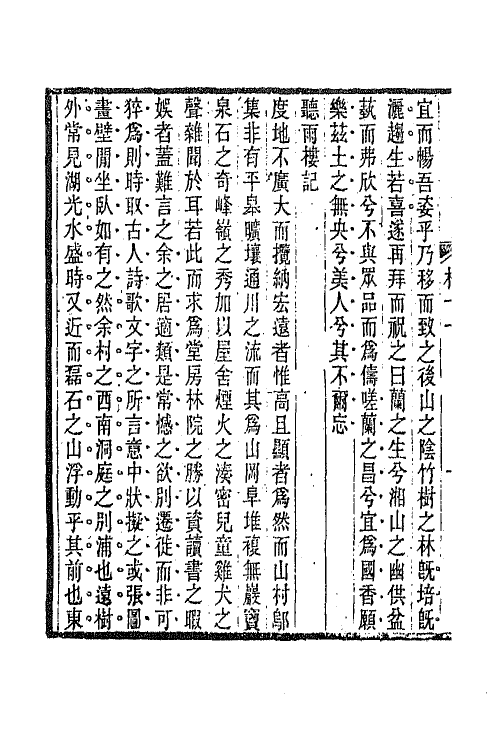 宜而暢吾姿乎乃移而致之後山之陰竹樹之林旣培旣
灑趨生若喜遂再拜而祝之曰蘭之生兮湘山之幽供盆
荻而弗欣兮不與眾品而爲儔嗟蘭之昌兮宜爲國香願
樂茲土之無央兮美人兮其不爾忘
聽雨樓記
度地不廣大而攬納宏遠者惟高且顯者爲然而山村鄔
集非有平皋曠壤通川之流而其爲山岡阜堆複無巖竇
泉石之奇峰嶺之秀加以屋舍煙火之湊密兒童雞犬之
聲雜聞於耳若此而求爲堂房林院之勝以資讀書之暇
娛者蓋難言之余之居適類是常憾之欲別遷徙而非可
猝爲則時取古人詩歌文字之所言意中狀擬之或張圖
畫壁閒坐臥如有之然余村之西南洞庭之別浦也遠樹
外常見湖光水盛時又近而磊石之山浮動乎其前也東